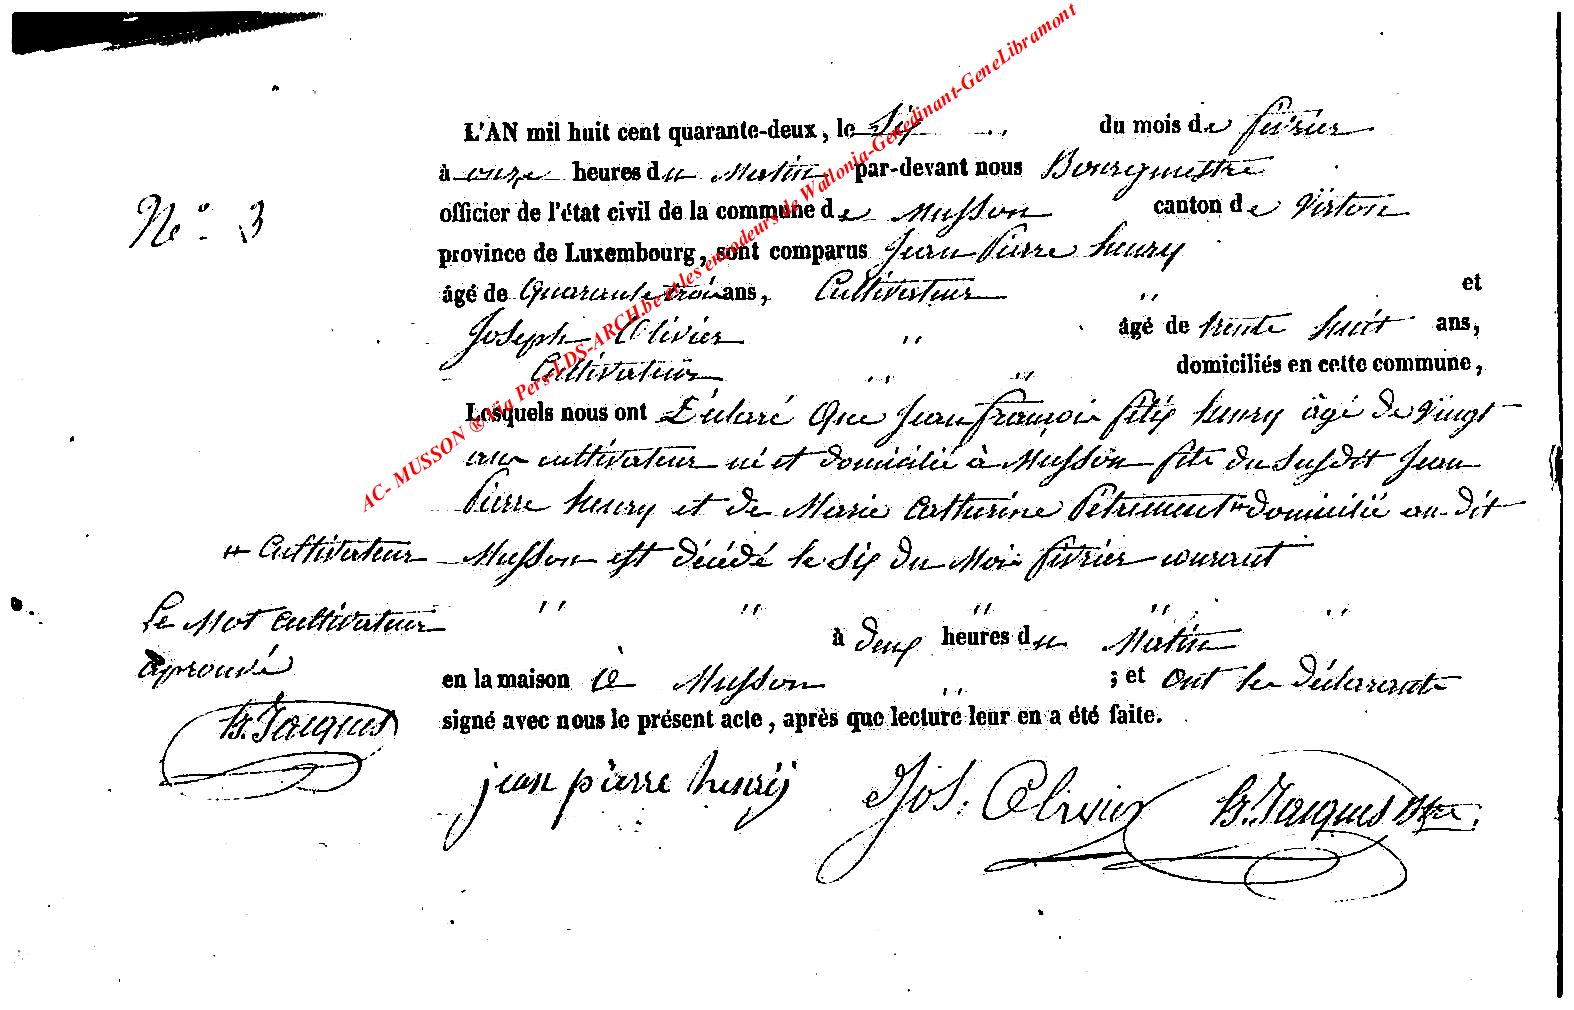 L'AN mil huit cent quarante-deux, le Six du mois de février
à onze heures du Matin par-devant nous Bourgmestre
officier de l'état civil de la commune de Musson canton de Virton
N° 3
province de Luxembourg, sont comparus Jean Pierre henry
âgé de Quarante trois ans, Cultivateur et
Joseph Olivier âgé de trente huit ans,
Cultivateur domiciliés en cette commune,
Lesquels nous ont Déclaré Que Jean françois félix henry âgé de vingt
ans cultivateur né et domicilié à Musson fils du Susdit Jean
Pierre henry et de Marie Catherine Pétrement # domicilié au dit
# Cultivateur
Musson est décédé le Six du Moi février courant
Le Mot cultivateur
aprouvé
B. Jacques
à deux heures du Matin
en la maison à Musson ; et ont les déclarants
signé avec nous le présent acte, après que lecture leur en a été faite.
jean pierre henry Jos. Olivier B. Jacques Btre
AC- MUSSON ® via Pers-LDS-ARCH.be et les encodeurs de Wallonia-Genedinant-GeneLibramont